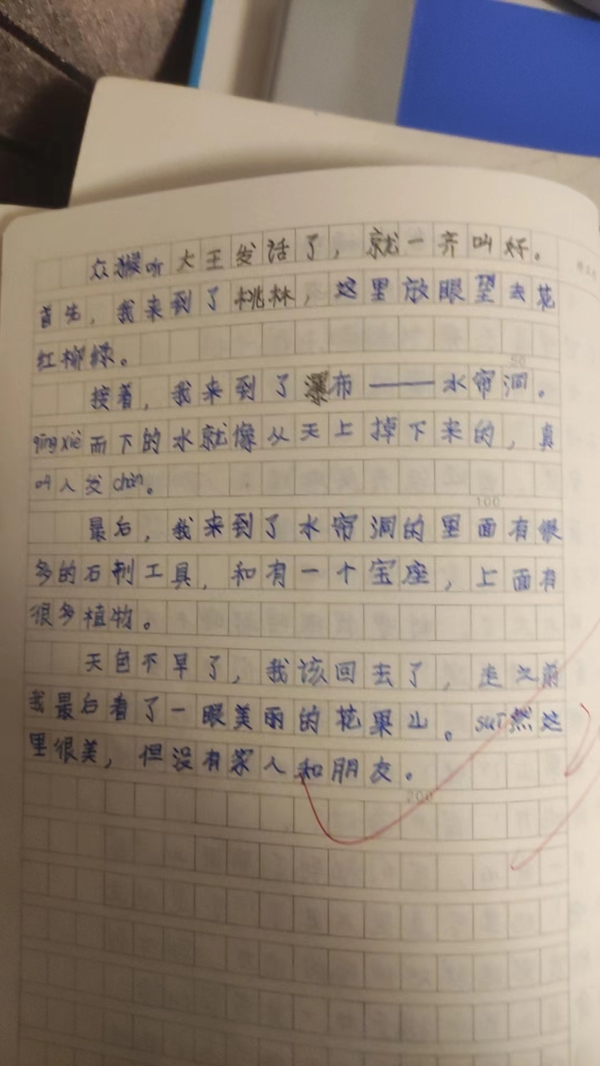 众猴听大王发话了，就一齐叫好。
首先，我来到了桃林，这里放眼望去花
红柳绿。
50
接着，我来到了瀑布——水帘洞。
qīngxiè而下的水就像从天上掉下来的，真
叫人发chàn。
100
最后，我来到了水帘洞的里面有很
多的石制工具，和有一个宝座，上面有
很多植物。
天色不早了，我该回去了，走之前
我最后看了一眼美丽的花果山。suī然这
里很美，但没有家人和朋友。
200